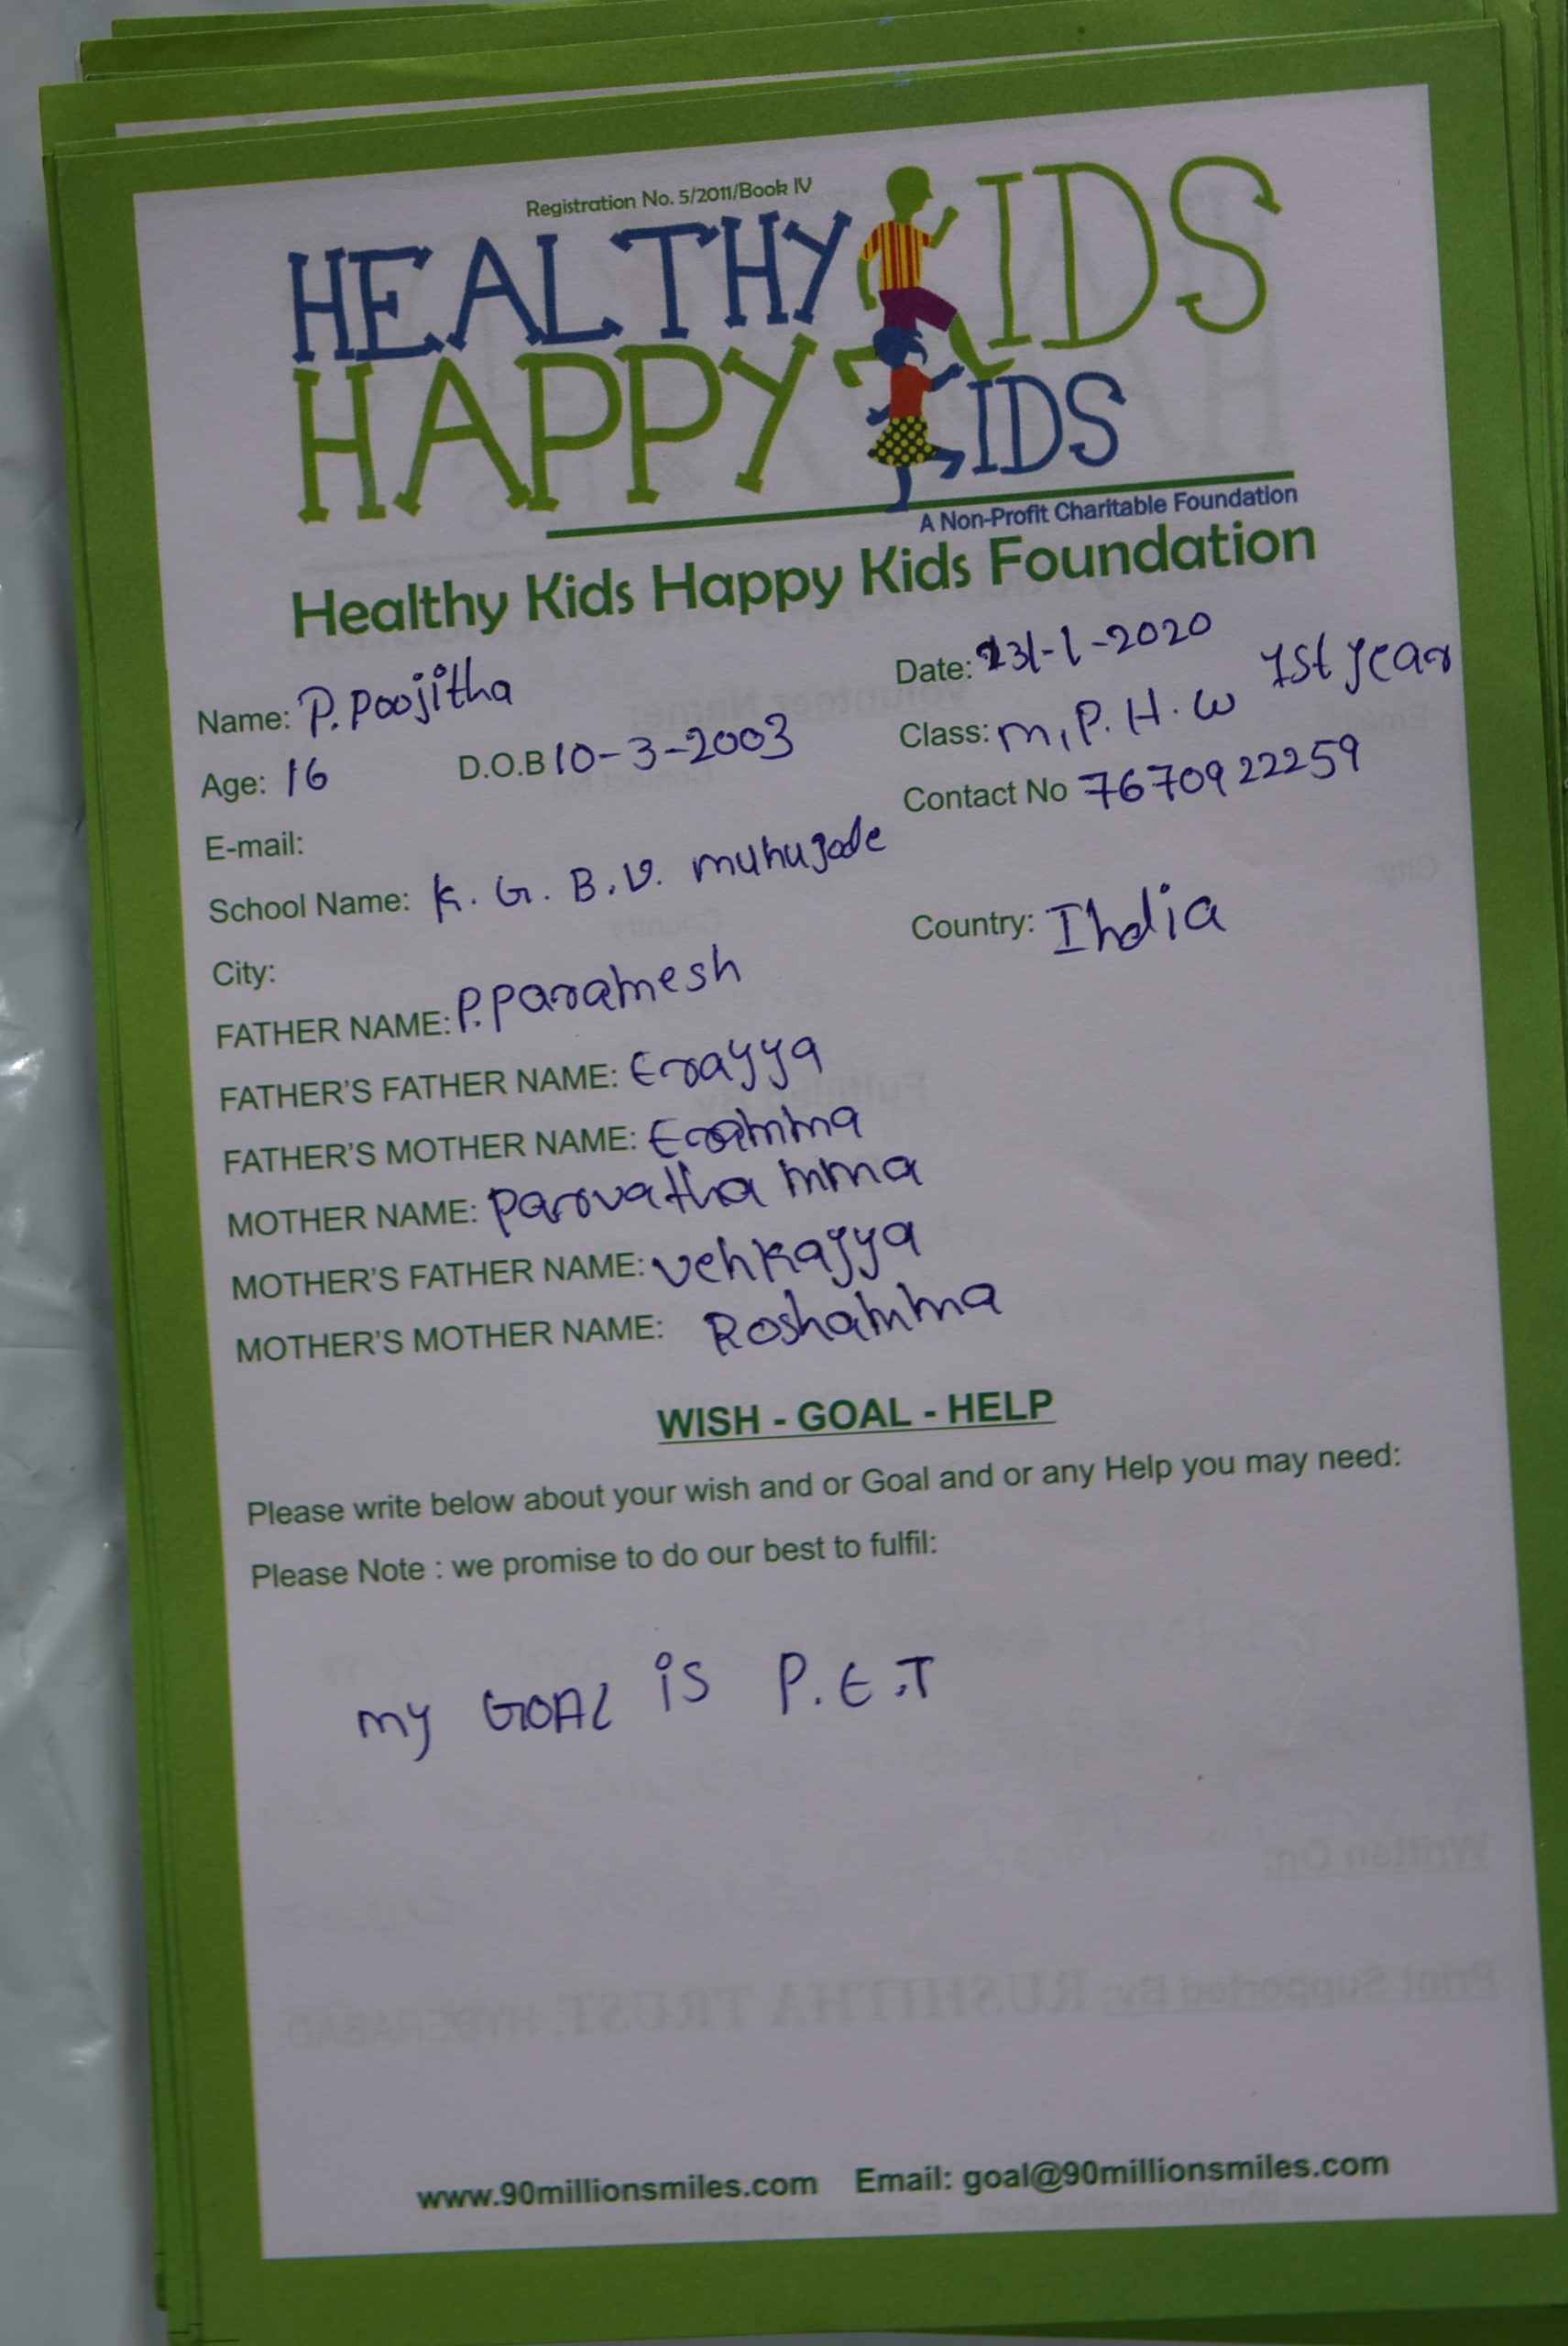 Registration No. 5/2011/Book IV
HEALTHY KIDS
HAPPY KIDS
A Non-Profit Charitable Foundation
Healthy Kids Happy Kids Foundation
Name: P. Poojitha Date: 31-1-2020
Age: 16 D.O.B 10-3-2003 Class: M.P.H.W 1st year
E-mail: Contact No 7670922259
School Name: K. G. B. V.
City: Country: India
FATHER NAME: P. Paramesh
FATHER'S FATHER NAME: Erayya
FATHER'S MOTHER NAME: Eramma
MOTHER NAME: Parvathamma
MOTHER'S FATHER NAME: Venkayya
MOTHER'S MOTHER NAME: Roshamma
WISH - GOAL - HELP
Please write below about your wish and or Goal and or any Help you may need:
Please Note : we promise to do our best to fulfil:
my GOAL is P.E.T
www.90millionsmiles.com Email: goal@90millionsmiles.com